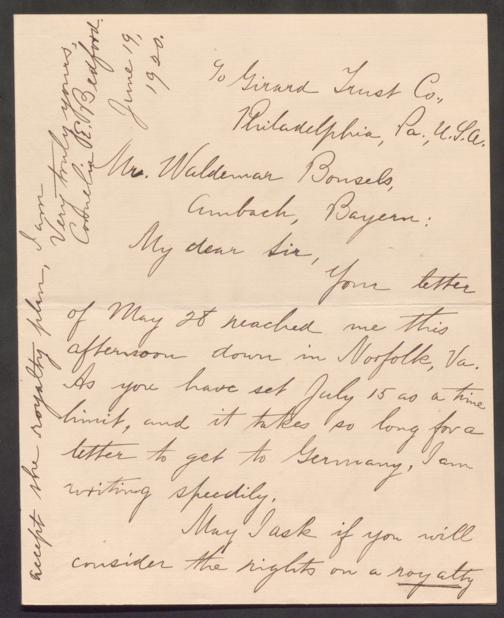 ℅ Girard Trust Co.,
Philadelphia, Pa., U.S.A.
June 19,
1920.
Mr. Waldemar Bonsels,
Ambach, Bayern:
My dear Sir,
Your letter
of May 28 reached me this
afternoon down in Norfolk, Va.
As you have set July 15 as a time
limit, and it takes so long for a
letter to get to Germany, I am
writing speedily.
May I ask if you will
consider the rights on a royalty
accept the royalty plan, I am
Very truly yours,
Cornelia E. Bedford.